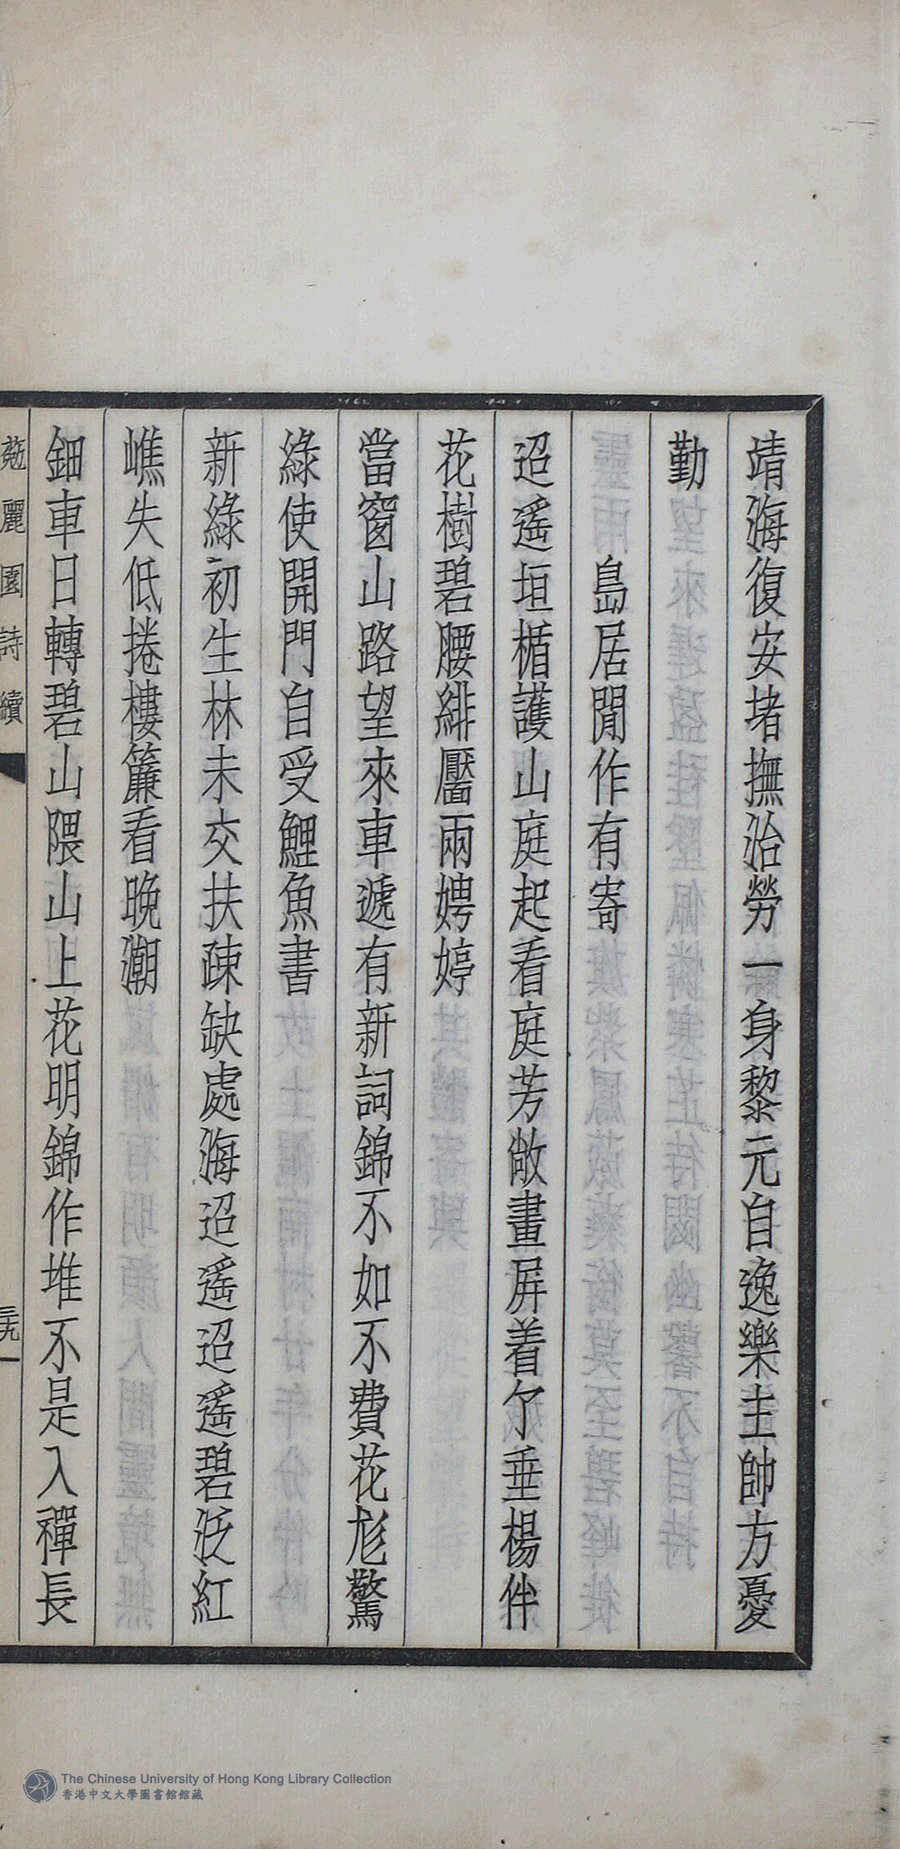 靖海復安堵撫治勞一身黎元自逸樂主帥方憂
勤
島居閒作有寄
迢遙垣楯護山庭起看庭芳敞畫屏着尒垂楊伴
花樹碧腰緋靨兩娉婷
當窗山路望來車遞有新詞錦不如不費花尨驚
綠使開門自受鯉魚書
新綠初生林未交扶疎缺處海迢遙迢遙碧泛紅
嶕失低捲樓簾看晚潮
鈿車日轉碧山隈山上花明錦作堆不是入禪長
麗園詩續
三九
The Chinese University of Hong Kong Library Collection
香港中文大學圖書館館藏